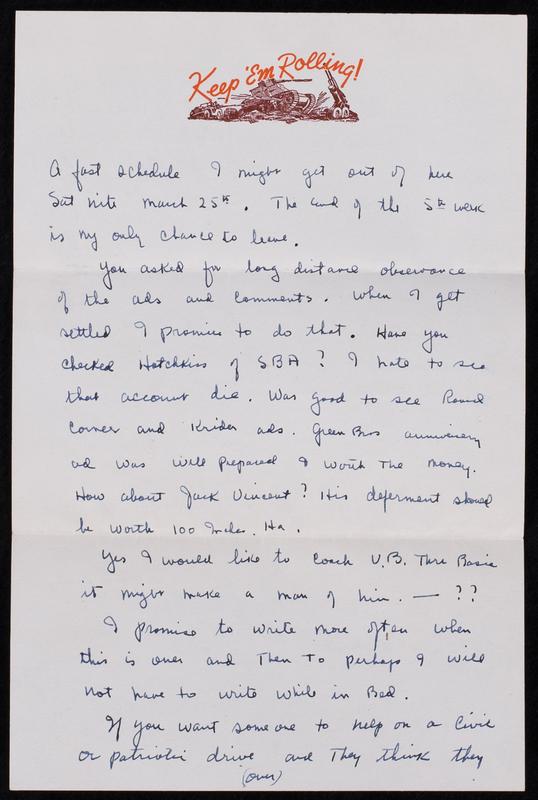 Keep 'Em Rolling!
A fast schedule I might get out of here
Sat nite march 25th. The end of the 5th week
is my only chance to leave.
You asked for long distance observance
of the ads and comments. When I get
settled I promise to do that. Have you
checked Hotchkiss of SBA? I hate to see
that account die. Was good to see Round
Corner and Krider ads. Green Bros anniversery
ad was well prepared & worth the money.
How about Jack Vincent? His deferment should
be worth 100 Inches. Ha.
Yes I would like to coach V.B. Thru Basic
it might make a man of him. — ??
I promise to write more often when
this is over and Then To perhaps I will
not have to write while in Bed.
If you want some one to help on a Civic
or patriotic drive and They think they
(over)